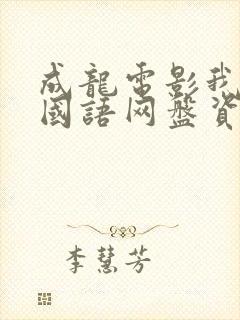 成龍電影我
國語网盤資
李慧芳